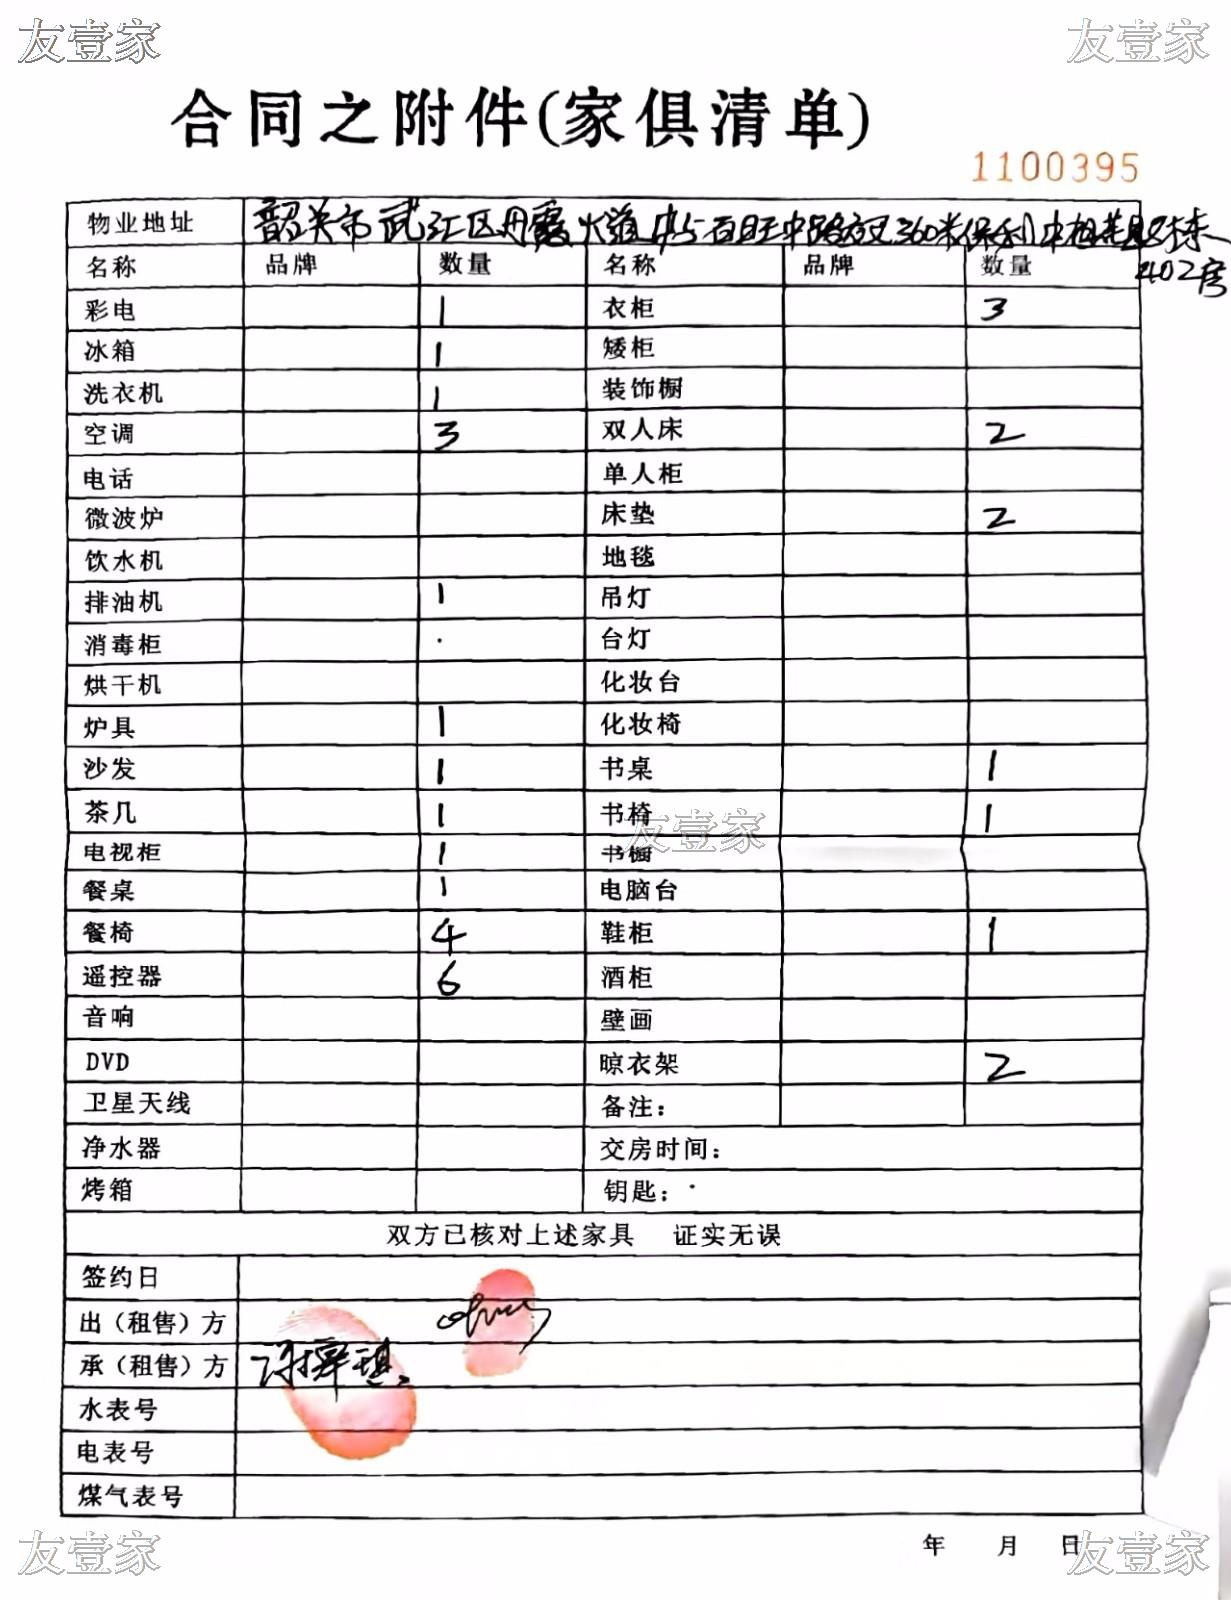 友壹家 友壹家
合同之附件(家俱清单)
1100395
物业地址 韶关市武江区丹霞大道中与百旺中路交叉360米保利中 栋
402房
名称 品牌 数量 名称 品牌 数量
彩电 1 衣柜 3
冰箱 1 矮柜
洗衣机 1 装饰橱
空调 3 双人床 2
电话 单人柜
微波炉 床垫 2
饮水机 地毯
排油机 1 吊灯
消毒柜 台灯
烘干机 化妆台
炉具 1 化妆椅
沙发 1 书桌 1
茶几 1 书椅 1
友壹家
电视柜 1 书橱
餐桌 1 电脑台
餐椅 4 鞋柜 1
遥控器 6 酒柜
音响 壁画
DVD 晾衣架 2
卫星天线 备注：
净水器 交房时间：
烤箱 钥匙：
双方已核对上述家具 证实无误
签约日
出（租售）方
承（租售）方
水表号
电表号
煤气表号
年 月 日
友壹家 友壹家